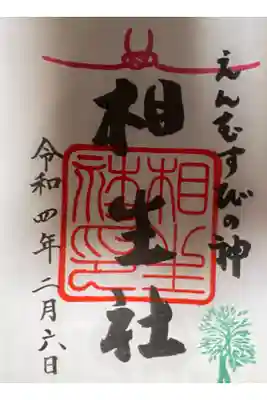 えんむすびの神
相生社
相生社神璽
令和四年二月六日